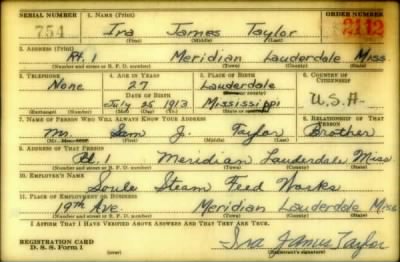 SERIAL NUMBER 1. NAME (Print) ORDER NUMBER
754 Ira James Taylor 2112
(First) (Middle) (Last)
2. ADDRESS (Print)
Rt. 1 Meridian Lauderdale Miss
(Number and street or R. F. D. number) (Town) (County) (State)
3. TELEPHONE 4. AGE IN YEARS 5. PLACE OF BIRTH 6. COUNTRY OF CITIZENSHIP
None 27 Lauderdale
DATE OF BIRTH (Town or county)
July 25 1913 Mississippi U.S.A.
(Exchange) (Number) (Mo.) (Day) (Yr.) (State or country)
7. NAME OF PERSON WHO WILL ALWAYS KNOW YOUR ADDRESS 8. RELATIONSHIP OF THAT PERSON
Mr. Sam J. Taylor Brother
(Mr., Mrs., Miss) (First) (Middle) (Last)
9. ADDRESS OF THAT PERSON
Rt. 1 Meridian Lauderdale Miss
(Number and street or R. F. D. number) (Town) (County) (State)
10. EMPLOYER'S NAME
Soule Steam Feed Works
11. PLACE OF EMPLOYMENT OR BUSINESS
19th Ave. Meridian Lauderdale Miss
(Number and street or R. F. D. number) (Town) (County) (State)
I AFFIRM THAT I HAVE VERIFIED ABOVE ANSWERS AND THAT THEY ARE TRUE.
REGISTRATION CARD
D. S. S. Form 1 (over) Ira James Taylor
(Registrant's signature)